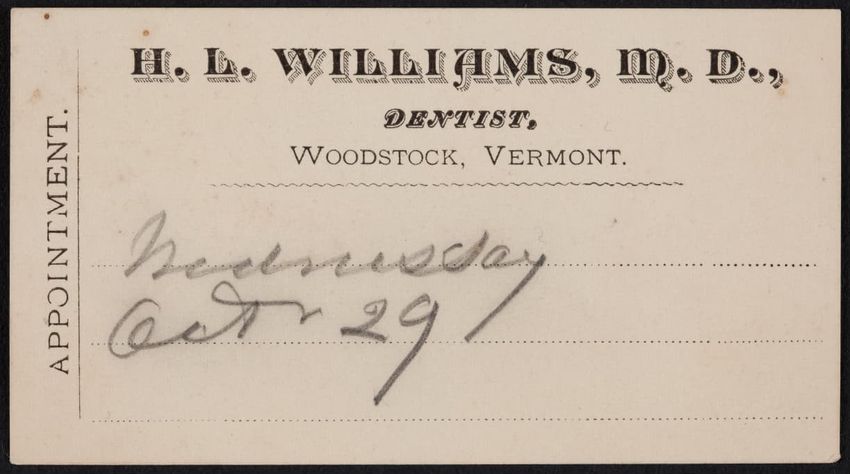 APPOINTMENT.
H. L. WILLIAMS, M. D.,
DENTIST,
WOODSTOCK, VERMONT.
Wednesday
Octr 29